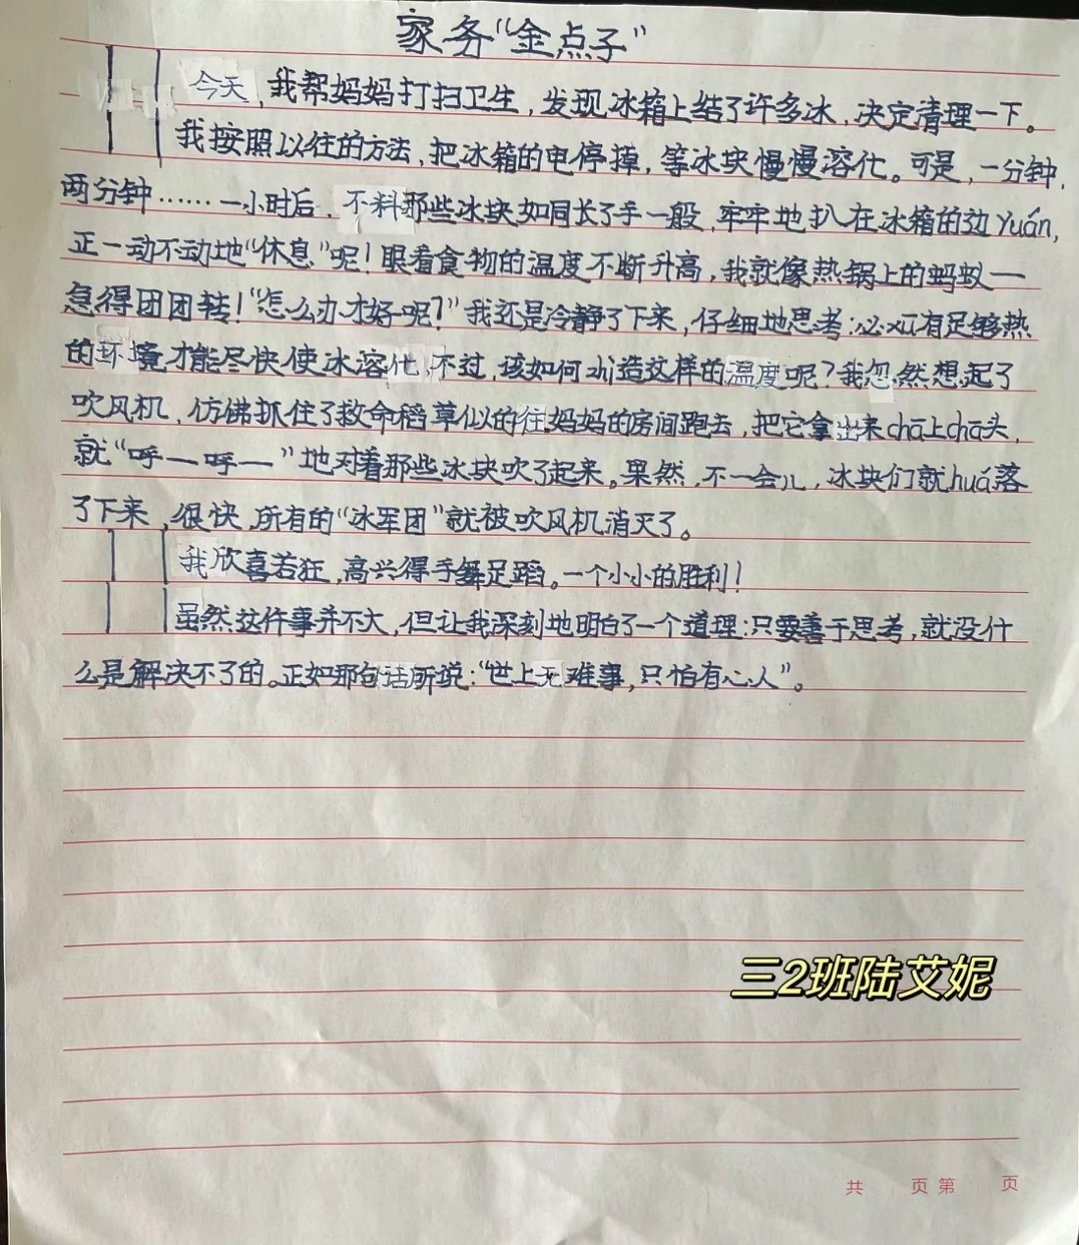 家务“金点子”
今天,我帮妈妈打扫卫生,发现冰箱上结了许多冰,决定清理一下。
我按照以往的方法,把冰箱的电停掉,等冰块慢慢溶化。可是,一分钟,
两分钟……一小时后,不料那些冰块如同长了手一般,牢牢地扒在冰箱的边yuán,
正一动不动地“休息”呢!眼看食物的温度不断升高,我就像热锅上的蚂蚁一
急得团团转!“怎么办才好呢?”我还是冷静了下来,仔细地思考:必xū有足够热
的环境才能尽快使冰溶化,不过,该如何zhì造这样的温度呢?我忽然想起了
吹风机,仿佛抓住了救命稻草似的往妈妈的房间跑去,把它拿出来chā上chā头,
就“呼一呼一”地对着那些冰块吹了起来。果然,不一会儿,冰块们就huá落
了下来,很快,所有的“冰军团”就被吹风机消灭了。
我欣喜若狂,高兴得手舞足蹈。一个小小的胜利!
虽然这件事并不大,但让我深刻地明白了一个道理:只要善于思考,就没什
么是解决不了的。正如那句话所说:“世上无难事,只怕有心人”。
三2班陆艾妮
共 页第 页